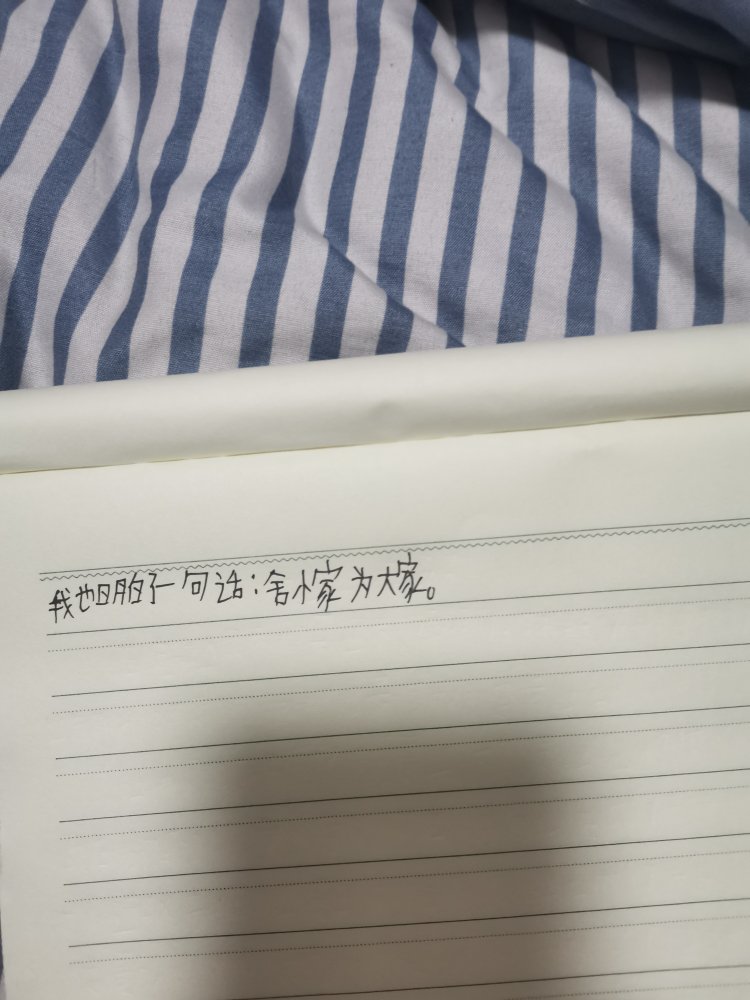 我也明白了一句话:舍小家为大家。